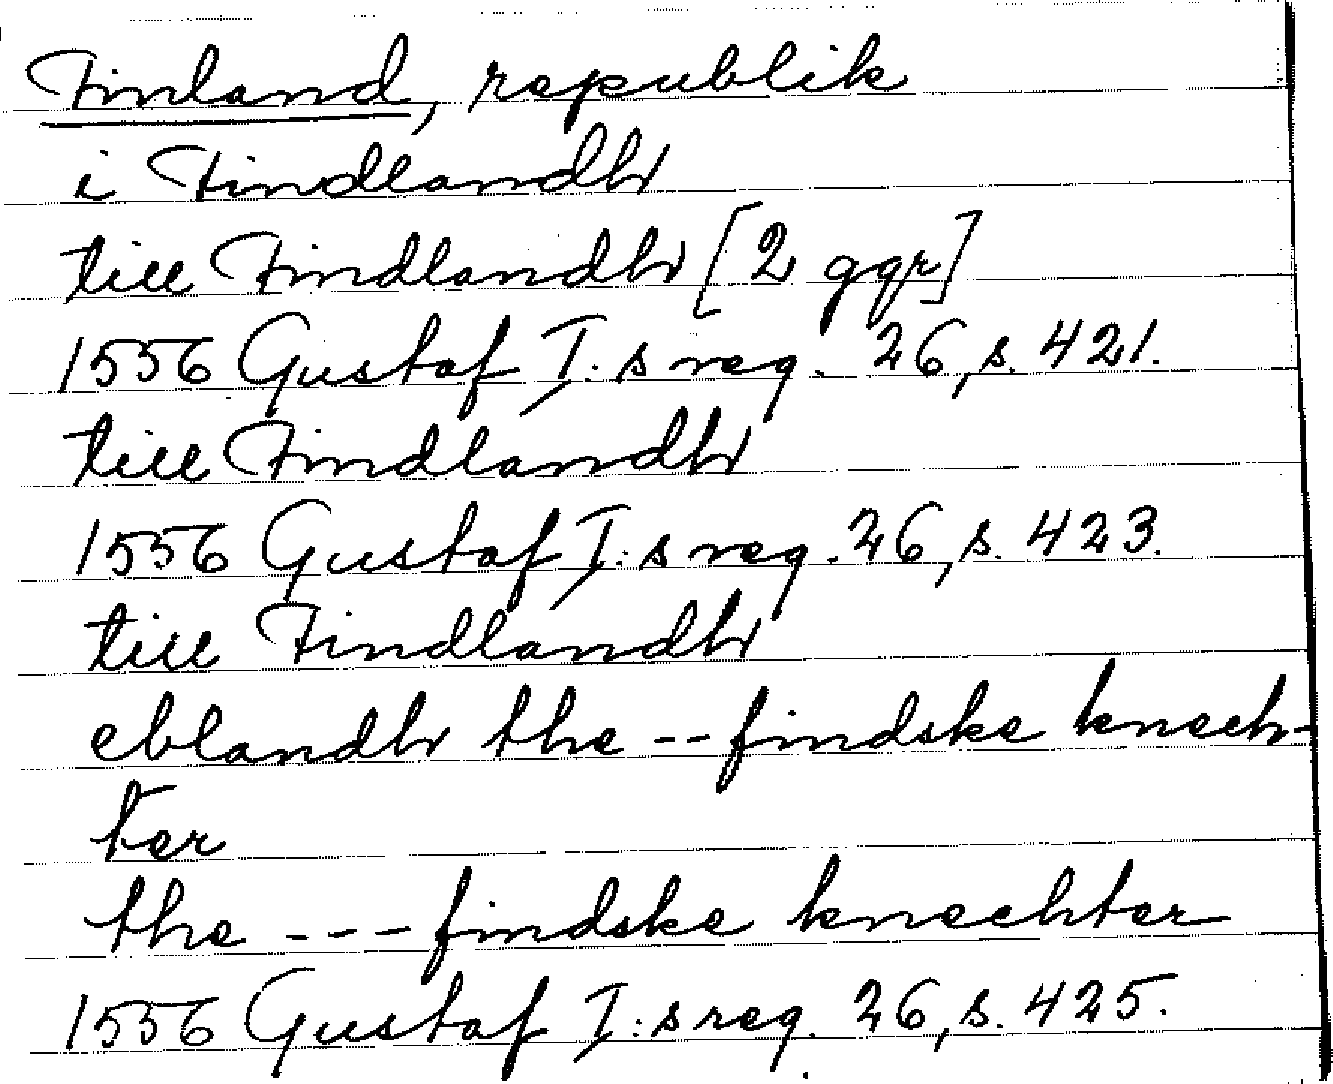 Finland, republik
i Findlandh
till Findlandh [2 ggr]
1556 Gustaf I:s reg. 26, s. 421.
till Findlandh
1556 Gustaf I:s reg. 26, s. 423.
till Findlandh
eblandh the -- findske knech-
ter
the --- findske knechter
1556 Gustaf I:s reg. 26, s. 425.